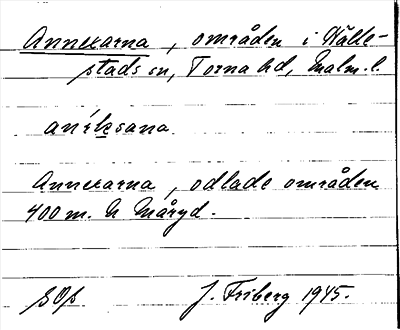 Annexarna, områden i Hälle-
stads sn, Torna hd, Malm. l.
Annexarna, odlade områden
400 m. N Måryd.
J. Friberg 1945.